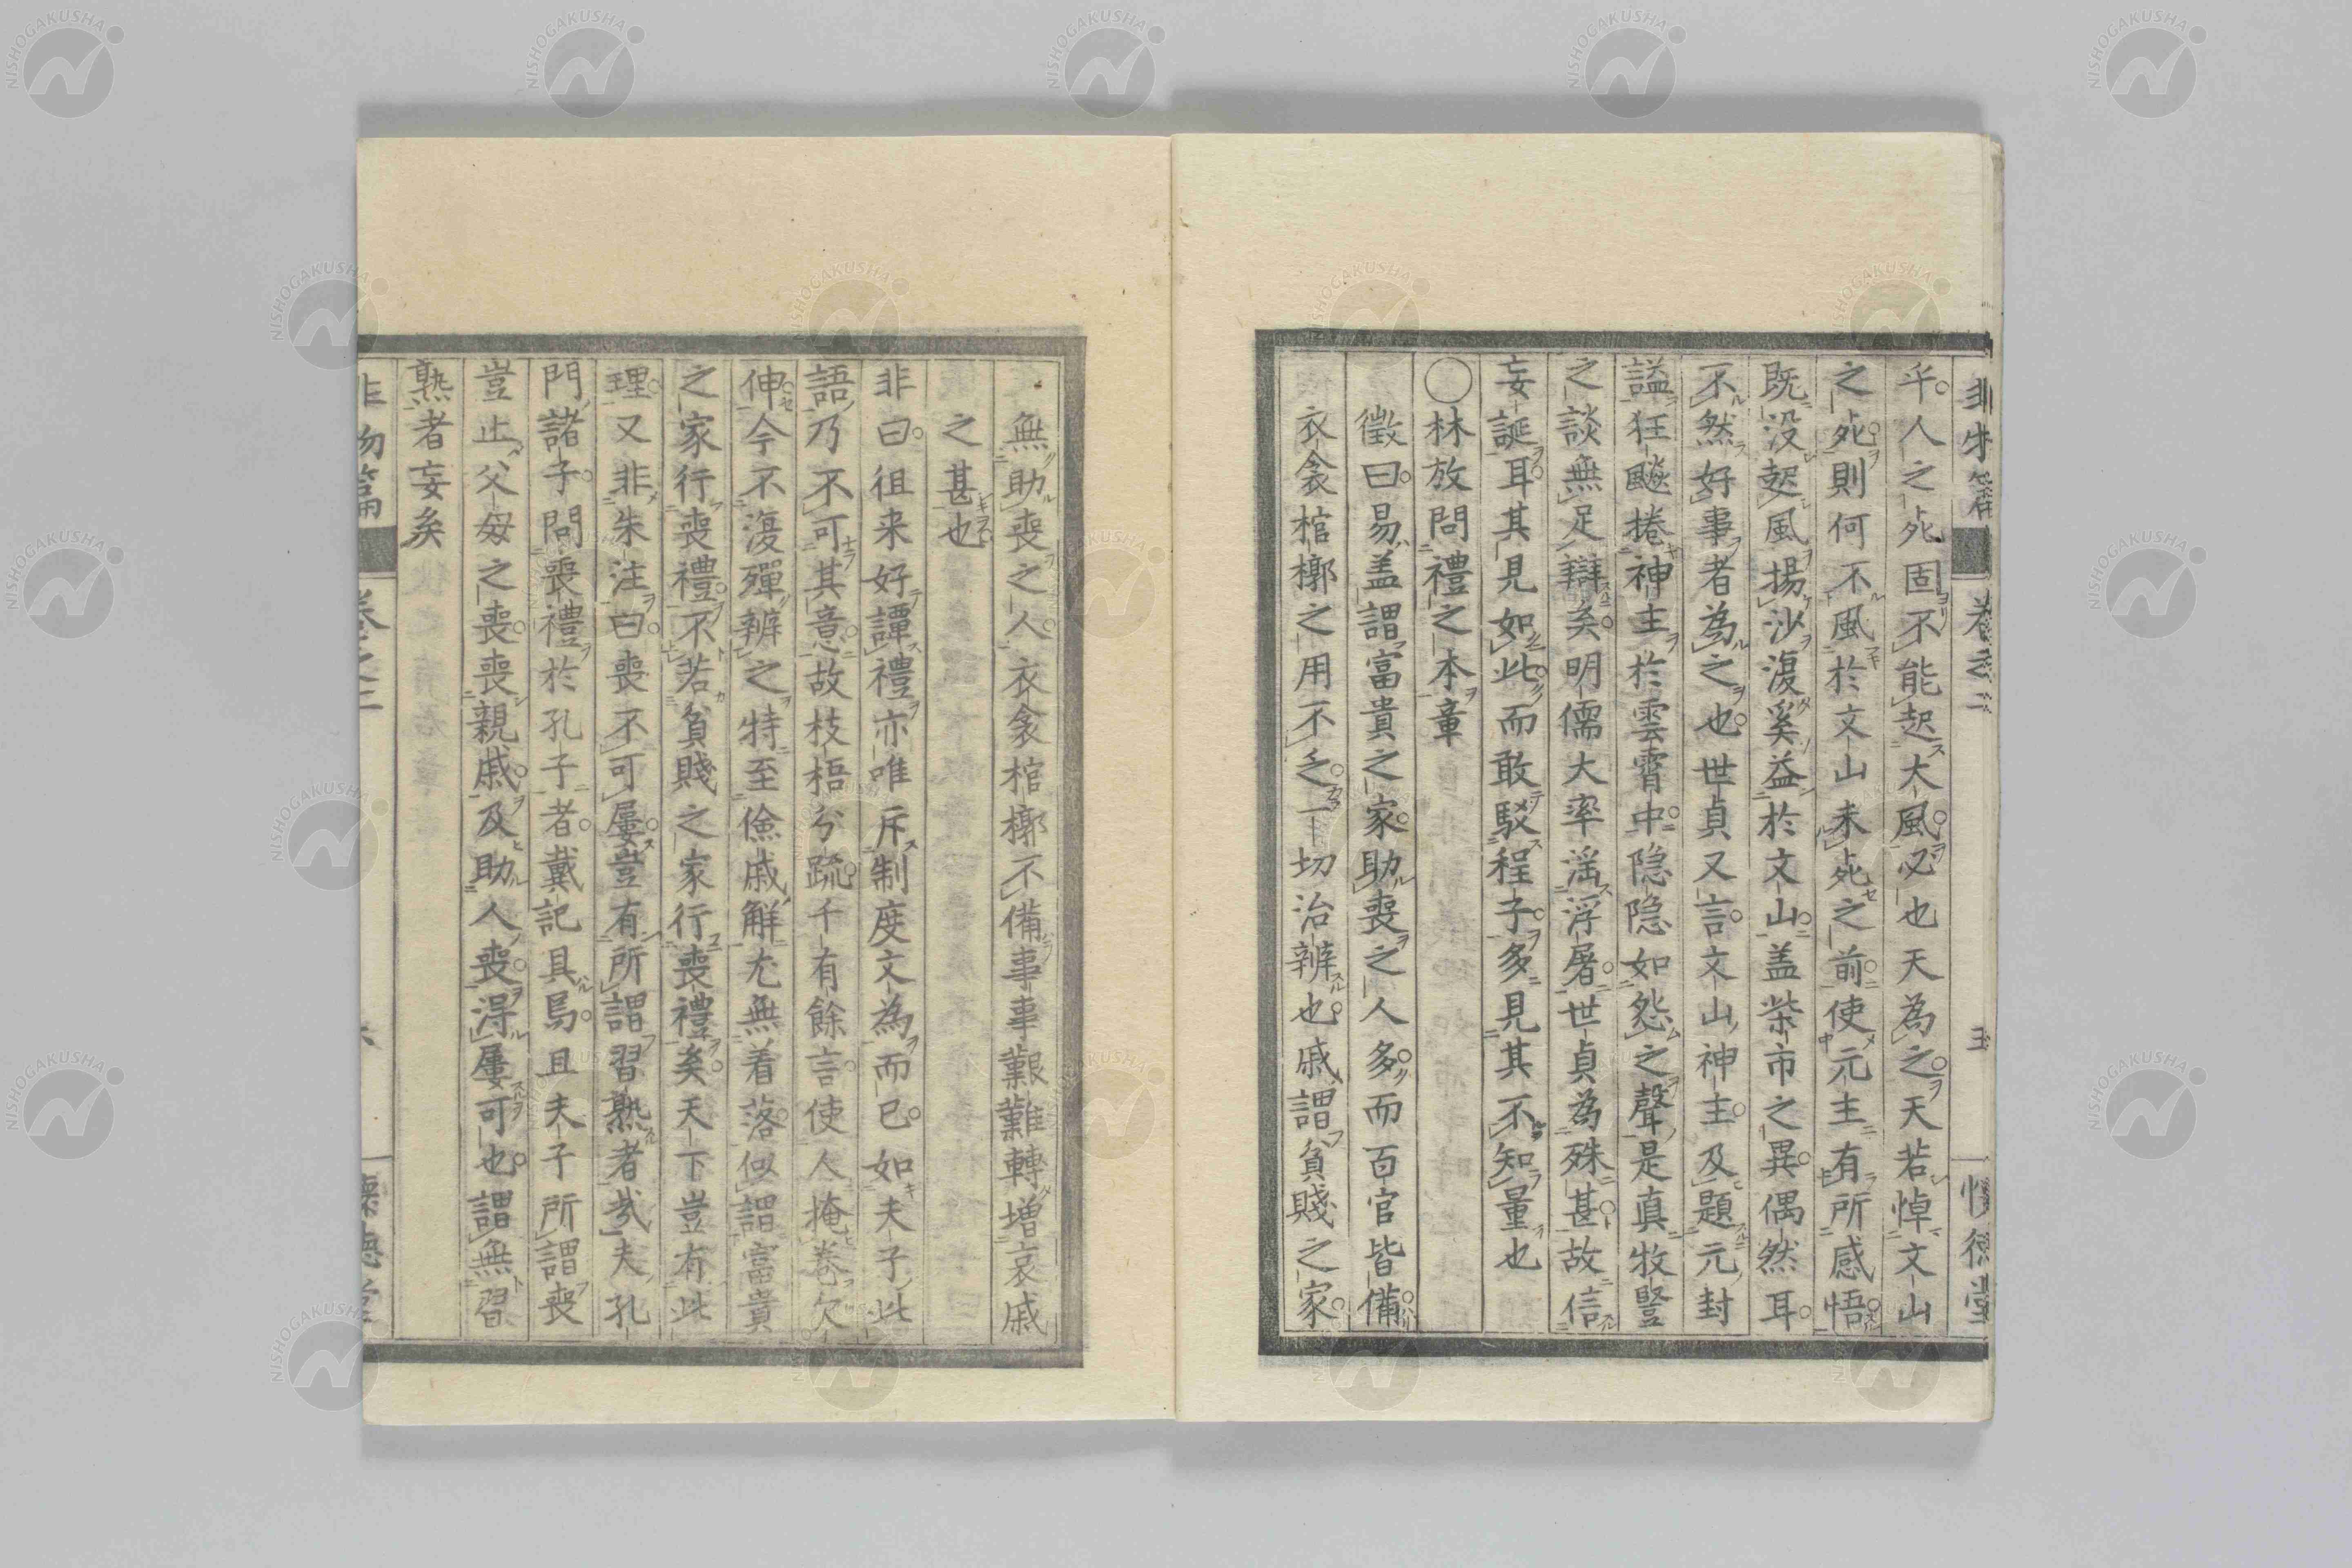 乎人之死固不能起大風必也天為之天若悼文山
之死則何不風於文山未死之前使元主有所感悟
既没起風揚沙復奚益於文山盖柴市之異偶然耳
不然好事者為之也世貞又言文山神主及題元封
謚狂飈捲神主於雲霄中隐隐如怨之聲是真牧豎
之談無足辯矣明儒大率滛浮屠世貞為殊甚故信
妄誕耳其見如此而敢駁程子多見其不知量也
○林放問禮之本章
徵曰易盖謂富貴之家助喪之人多而百官皆備
衣衾棺槨之用不乏一切治辨也戚謂貧賤之家
無助喪之人衣衾棺槨不備事事艱難轉増哀戚
之甚也
非曰徂来好譚禮亦唯斥制度文為而已如夫子此
語乃不可其意故枝梧分疏千有餘言使人掩巻欠
伸今不復殫辨之特至儉戚解尤無着落似謂富貴
之家行喪禮不若貧賤之家行喪禮矣天下豈有此
理又非朱注曰喪不可屢豈有所謂習熟者哉夫孔
門諸子問喪禮於孔子者戴記具焉且夫子所謂喪
豈止父母之喪喪親戚及助人喪得屢可也謂無習
熟者妄矣
非物篇
卷之二
懐徳堂
NISHOGAKUSHA